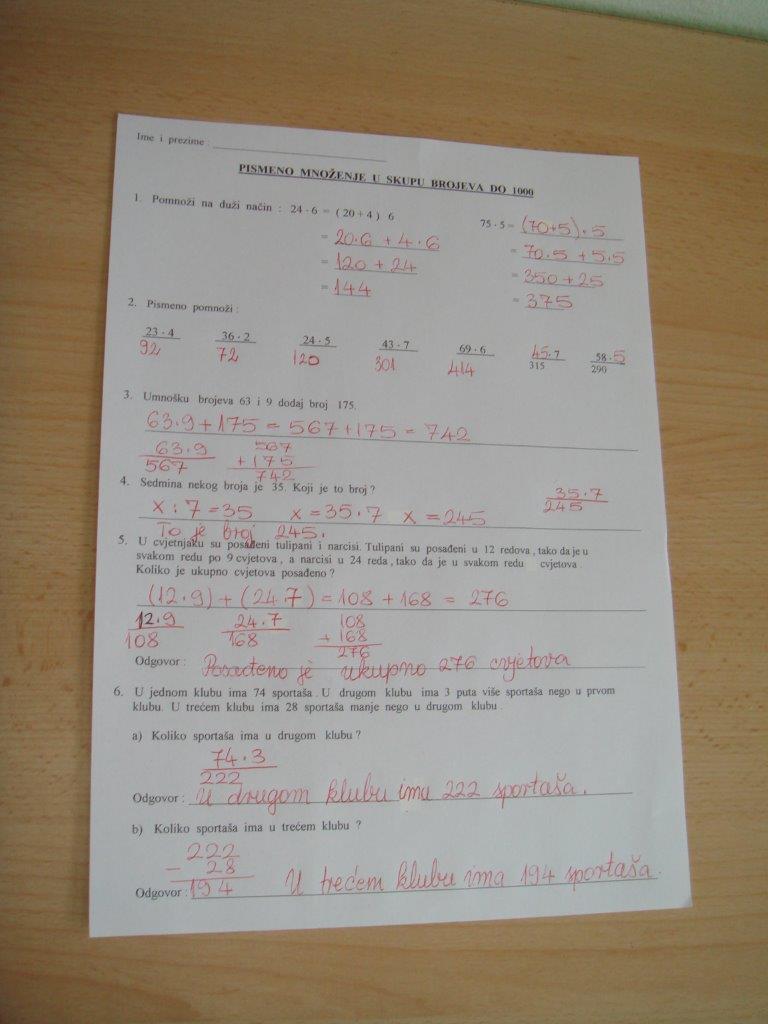 Ime i prezime :
PISMENO MNOŽENJE U SKUPU BROJEVA DO 1000
1. Pomnoži na duži način : 24 · 6 = ( 20 + 4 ) 6
= 20·6 + 4·6
= 120 + 24
= 144
75 · 5 = (70+5)·5
= 70·5 + 5·5
= 350 + 25
= 375
2. Pismeno pomnoži :
23 · 4 36 · 2 24 · 5 43 · 7 69 · 6 45 · 7 58 · 5
92 72 120 301 414 315 290
3. Umnošku brojeva 63 i 9 dodaj broj 175.
63·9 + 175 = 567 + 175 = 742
63·9 567
567 + 175
742
4. Sedmina nekog broja je 35. Koji je to broj ?
x : 7 = 35 x = 35·7 x = 245
35·7
245
To je broj 245.
5. U cvjetnjaku su posađeni tulipani i narcisi. Tulipani su posađeni u 12 redova , tako da je u
svakom redu po 9 cvjetova , a narcisi u 24 reda , tako da je u svakom redu cvjetova .
Koliko je ukupno cvjetova posađeno ?
(12·9) + (24·7) = 108 + 168 = 276
12·9 24·7 108
108 168 + 168
276
Odgovor : Posađeno je ukupno 276 cvjetova
6. U jednom klubu ima 74 sportaša . U drugom klubu ima 3 puta više sportaša nego u prvom
klubu. U trećem klubu ima 28 sportaša manje nego u drugom klubu .
a) Koliko sportaša ima u drugom klubu ?
74·3
222
Odgovor : U drugom klubu ima 222 sportaša.
b) Koliko sportaša ima u trećem klubu ?
222
- 28
194
Odgovor : U trećem klubu ima 194 sportaša.